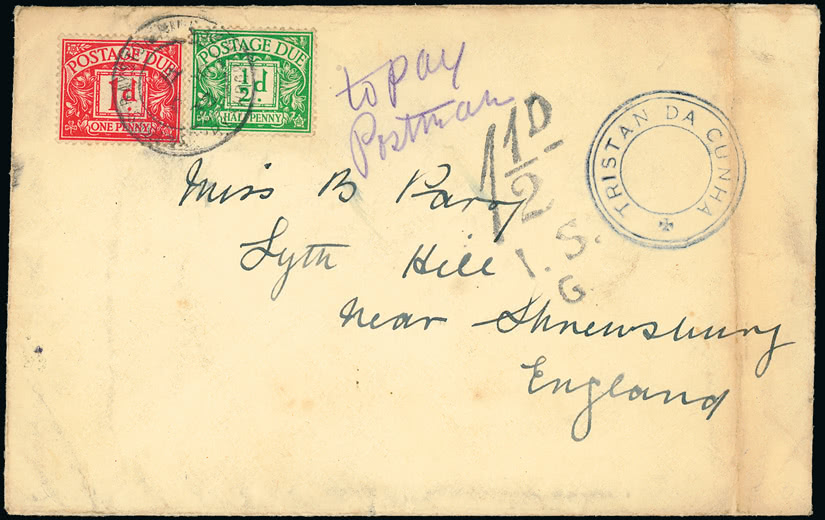 POSTAGE DUE
1d.
ONE PENNY
POSTAGE DUE
1/2 d.
HALFPENNY
to pay
Postman
1 1/2 D
S.
I.
G
TRISTAN DA CUNHA
Miss B Parry
Lyth Hill
near Shrewsbury
England